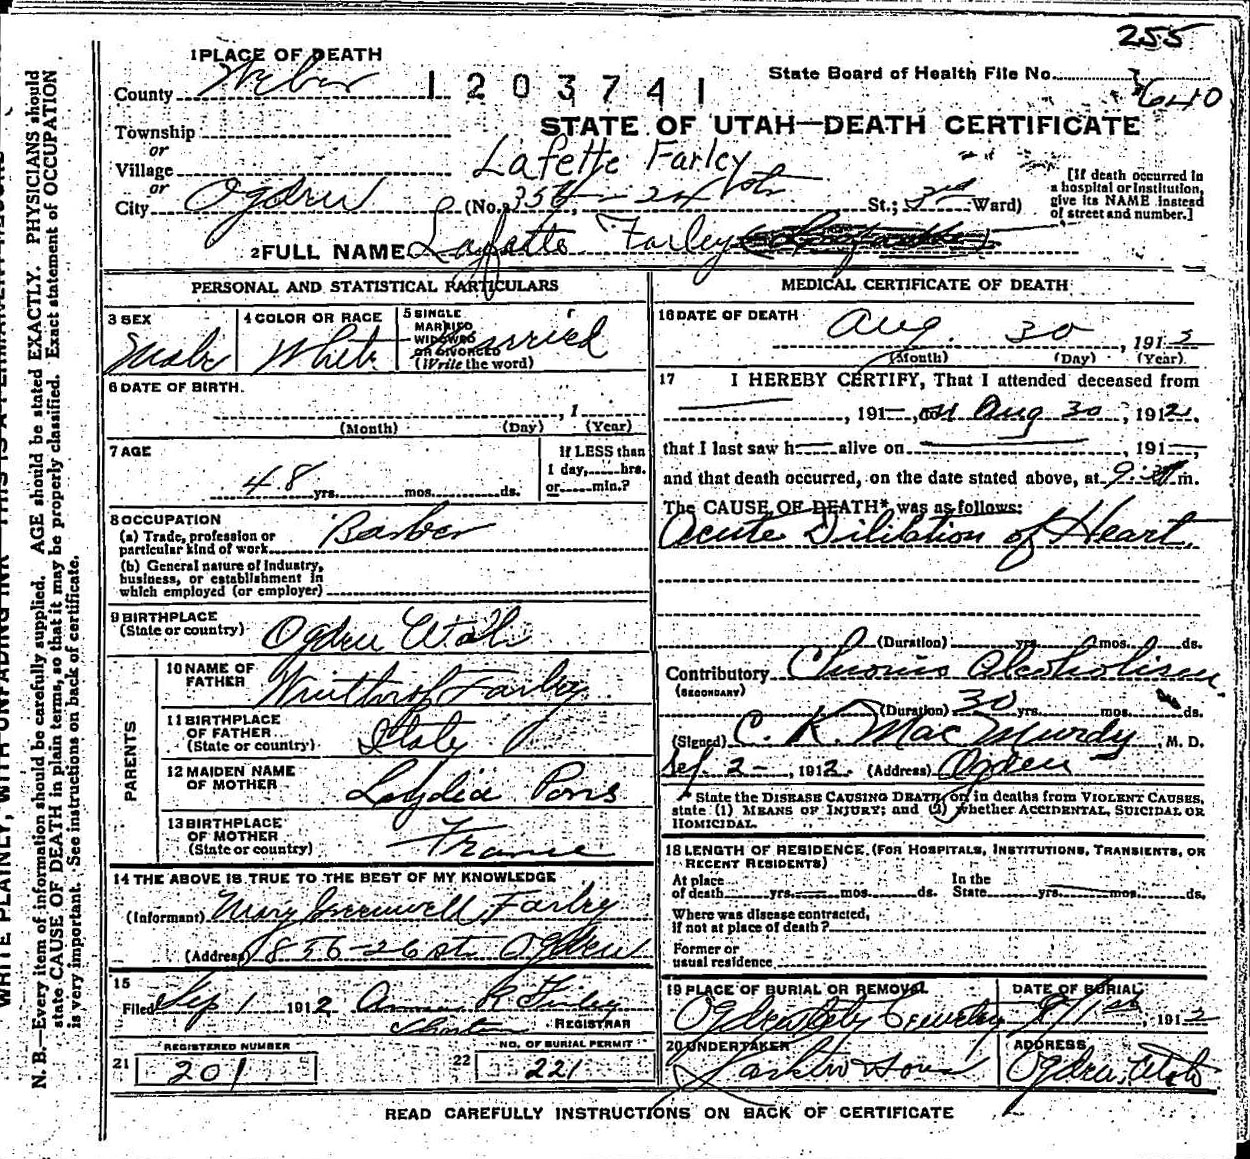 255
1 PLACE OF DEATH
State Board of Health File No.
County Weber
1203741
640
Township
STATE OF UTAH—DEATH CERTIFICATE
or
Village
Lafette Farley
or
City Ogden (No. 24th St.; 2nd Ward)
[If death occurred in
a hospital or institution,
give its NAME instead
of street and number.]
2 FULL NAME Lafatte Farley
PERSONAL AND STATISTICAL PARTICULARS
3 SEX
Male
4 COLOR OR RACE
White
5 SINGLE
MARRIED
WIDOWED
OR DIVORCED
(Write the word)
Married
6 DATE OF BIRTH.
, 1
(Month) (Day) (Year)
7 AGE
48 yrs. mos. ds.
If LESS than
1 day, hrs.
or min.?
8 OCCUPATION
(a) Trade, profession or
particular kind of work Barber
(b) General nature of Industry,
business, or establishment in
which employed (or employer)
9 BIRTHPLACE
(State or country) Ogden Utah
PARENTS
10 NAME OF
FATHER Winthrop Farley
11 BIRTHPLACE
OF FATHER
(State or country) Italy
12 MAIDEN NAME
OF MOTHER Lydia Pons
13 BIRTHPLACE
OF MOTHER
(State or country) France
14 THE ABOVE IS TRUE TO THE BEST OF MY KNOWLEDGE
(Informant) Mary Greenwell Farley
(Address) 856-26 st Ogden
15
Filed Sep 1 1912
REGISTRAR
REGISTERED NUMBER
21 201
NO. OF BURIAL PERMIT
22 221
MEDICAL CERTIFICATE OF DEATH
16 DATE OF DEATH
Aug. 30, 1912
(Month) (Day) (Year)
17 I HEREBY CERTIFY, That I attended deceased from
, 191—, on Aug 30, 1912.
that I last saw h alive on 191—,
and that death occurred, on the date stated above, at m.
The CAUSE OF DEATH* was as follows:
Acute Dilitation of Heart.
(Duration) yrs. mos. ds.
Contributory Chronic Alcoholism
(SECONDARY)
(Duration) 30 yrs. mos. ds.
(Signed) C. K. MacMurdy, M. D.
Sep. 2-, 1912. (Address) Ogden
* State the DISEASE CAUSING DEATH, or, in deaths from VIOLENT CAUSES,
state (1) MEANS OF INJURY; and (2) whether ACCIDENTAL, SUICIDAL OR
HOMICIDAL.
18 LENGTH OF RESIDENCE (FOR HOSPITALS, INSTITUTIONS, TRANSIENTS, OR
RECENT RESIDENTS)
At place
of death yrs. mos. ds.
In the
State yrs. mos. ds.
Where was disease contracted,
If not at place of death?
Former or
usual residence
19 PLACE OF BURIAL OR REMOVAL
Ogden City Cemetery
DATE OF BURIAL
9/1st, 1912
20 UNDERTAKER
Larkin & Sons
ADDRESS
Ogden, Utah
READ CAREFULLY INSTRUCTIONS ON BACK OF CERTIFICATE
WRITE PLAINLY, WITH UNFADING INK—THIS IS A PERMANENT RECORD
N. B.—Every item of information should be carefully supplied. AGE should be stated EXACTLY. PHYSICIANS should
state CAUSE OF DEATH in plain terms, so that it may be properly classified. Exact statement of OCCUPATION
is very important. See instructions on back of certificate.